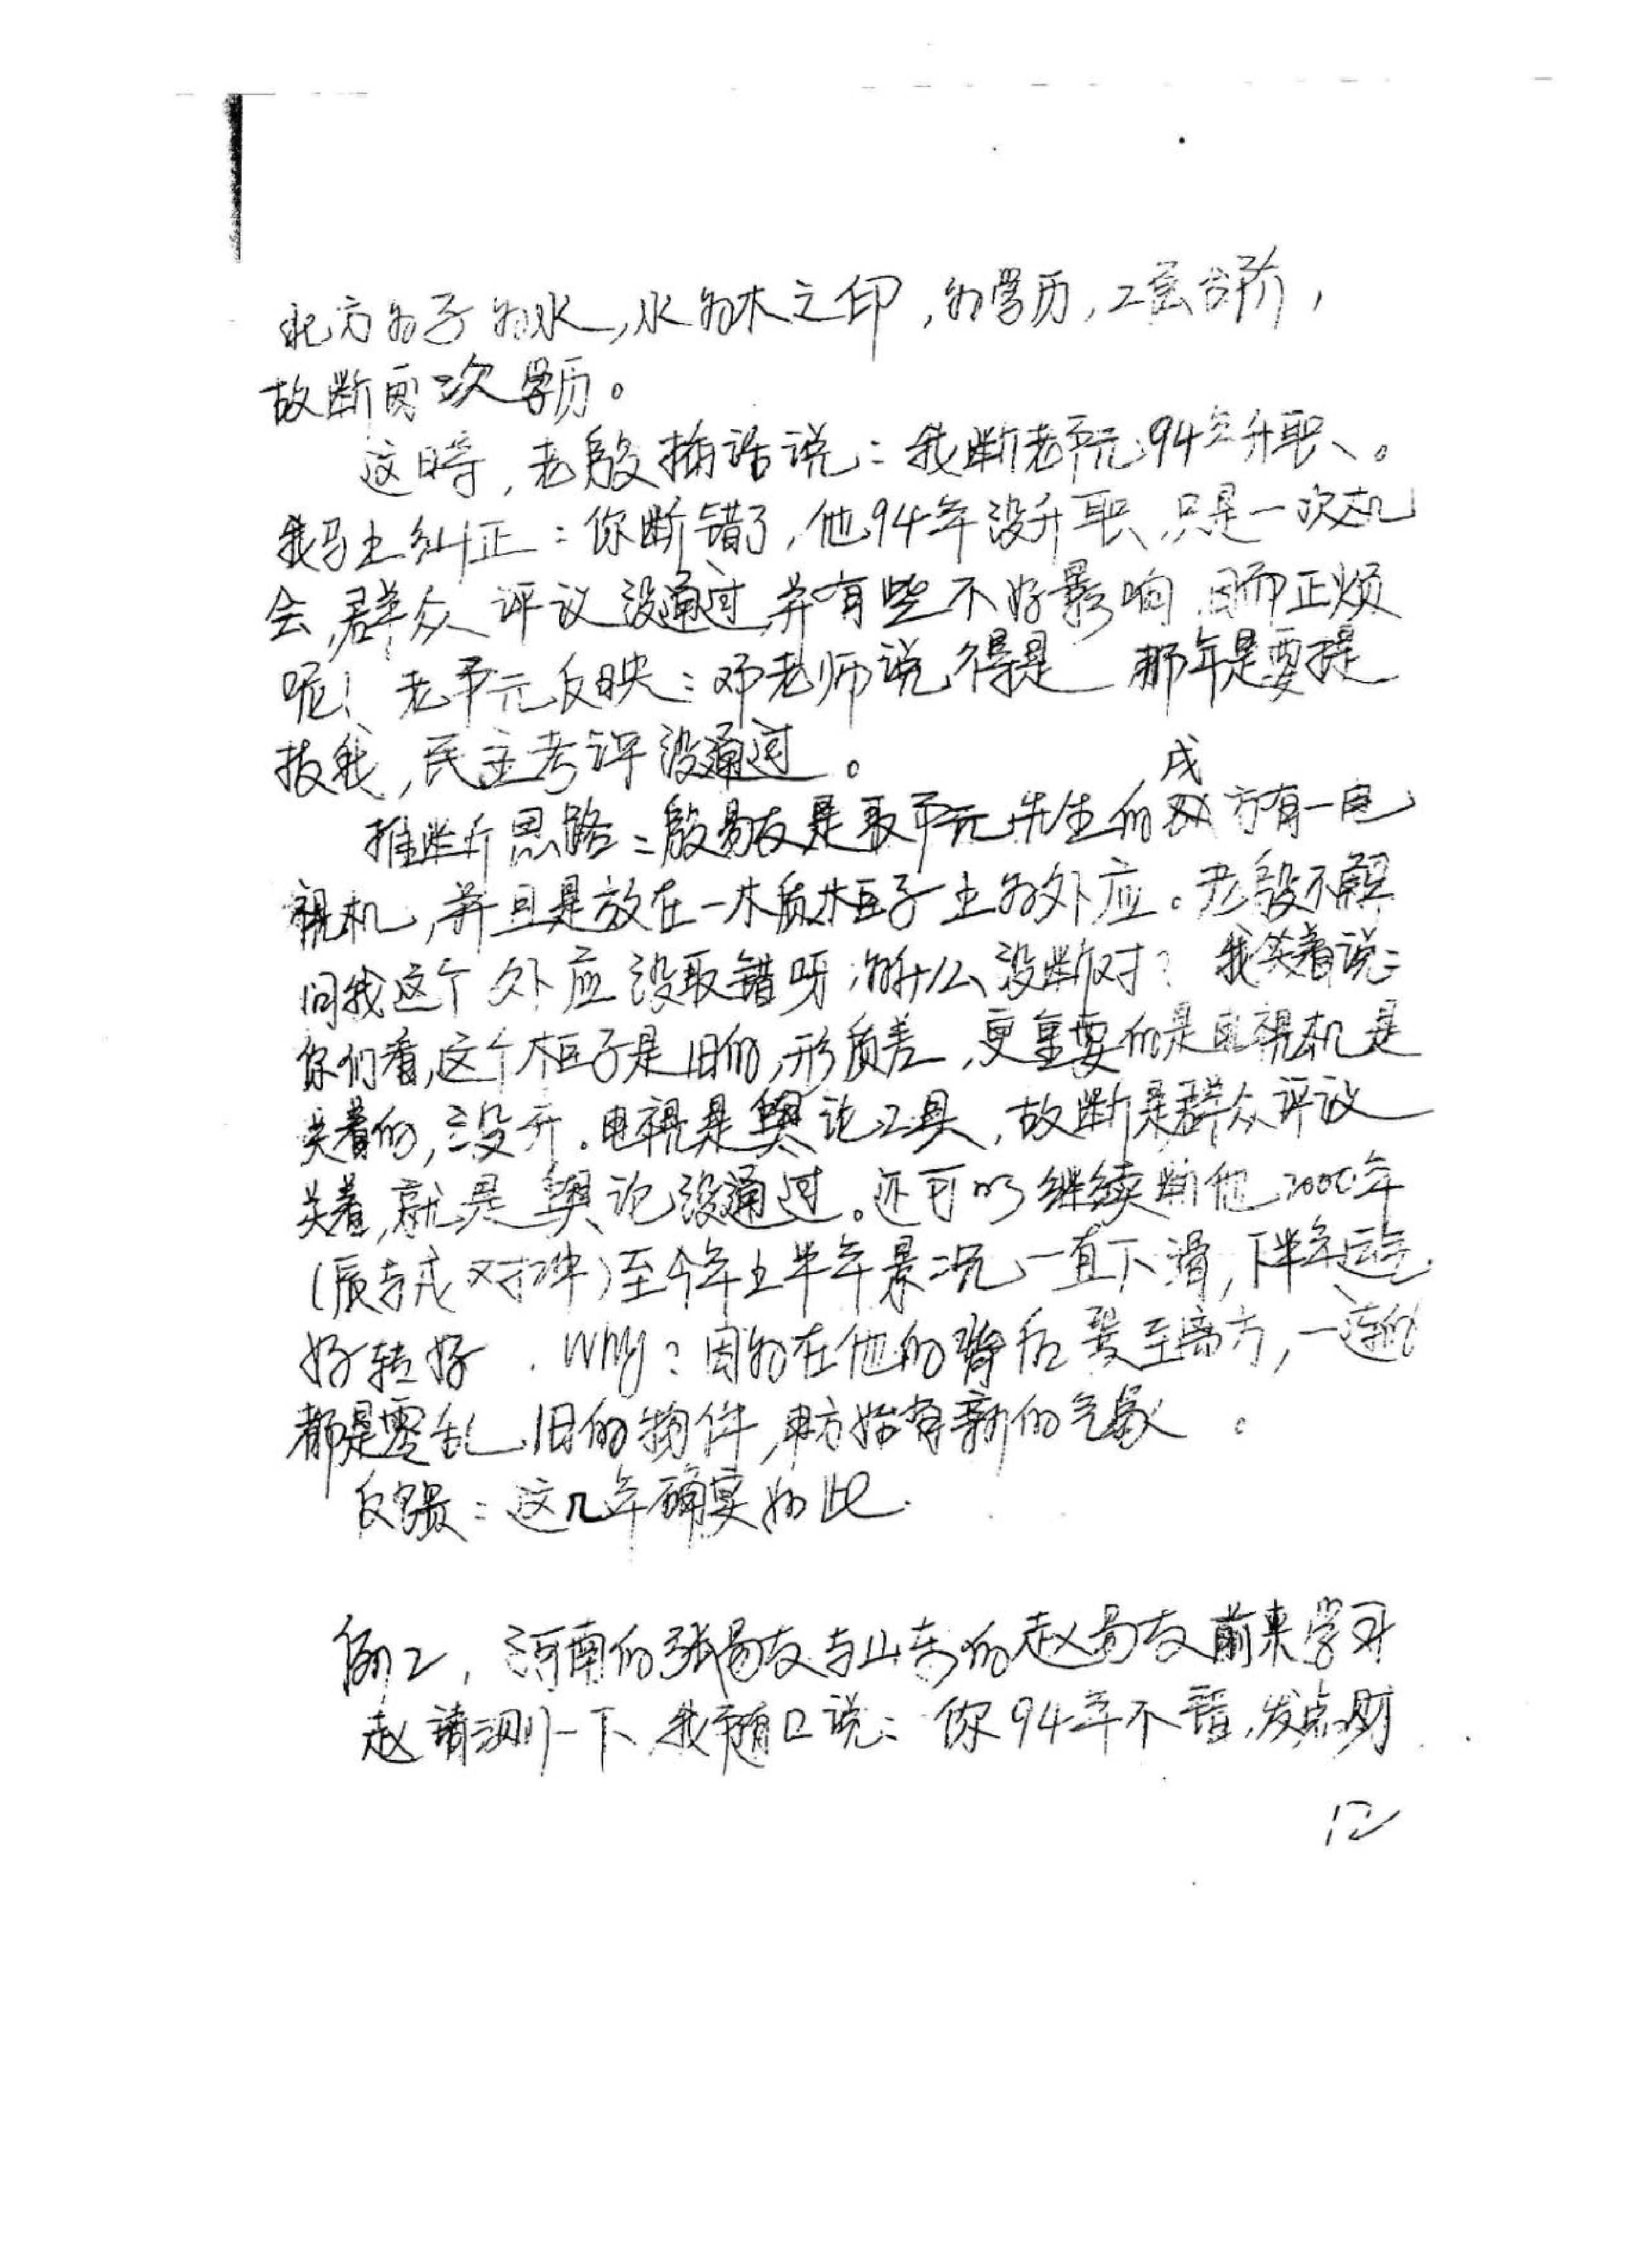 北方为子为水,水为木之印,为学历,2层台阶,
故断两次学历。
这时,老殷插话说:我断老平元94年升职、。
我马上纠正:你断错了,他94年没升职、只是一次机
会,群众评议没通过,并有些不好影响,目而正烦
呢!老平元反映:邓老师说得是 那年是要提
拔我,民主考评没通过。
推断思路:殷易友是取平元先生的戌方有一电
视机,并且是放在一木质柜子上为外应。老殷不解
问我这个外应没取错呀,为什么没断对?我笑着说:
你们看,这个柜子是旧的,形质差,更重要的是电视机是
关着的,没开.电视是舆论工具,故断是群众评议
关着,就是舆论没通过。还可以继续断他2000年
(辰与戌对冲)至今年上半年景况一直下滑,下半年运气
好转好.Why?因为在他的背后 至 方,一连的
都是零乱、旧的物件,東方始有新的气象。
反馈:这几年确实如此.
例2,河南的张易友与山东的赵易友前来学习
赵请测一下,我随口说:你94年不错,发点财
12